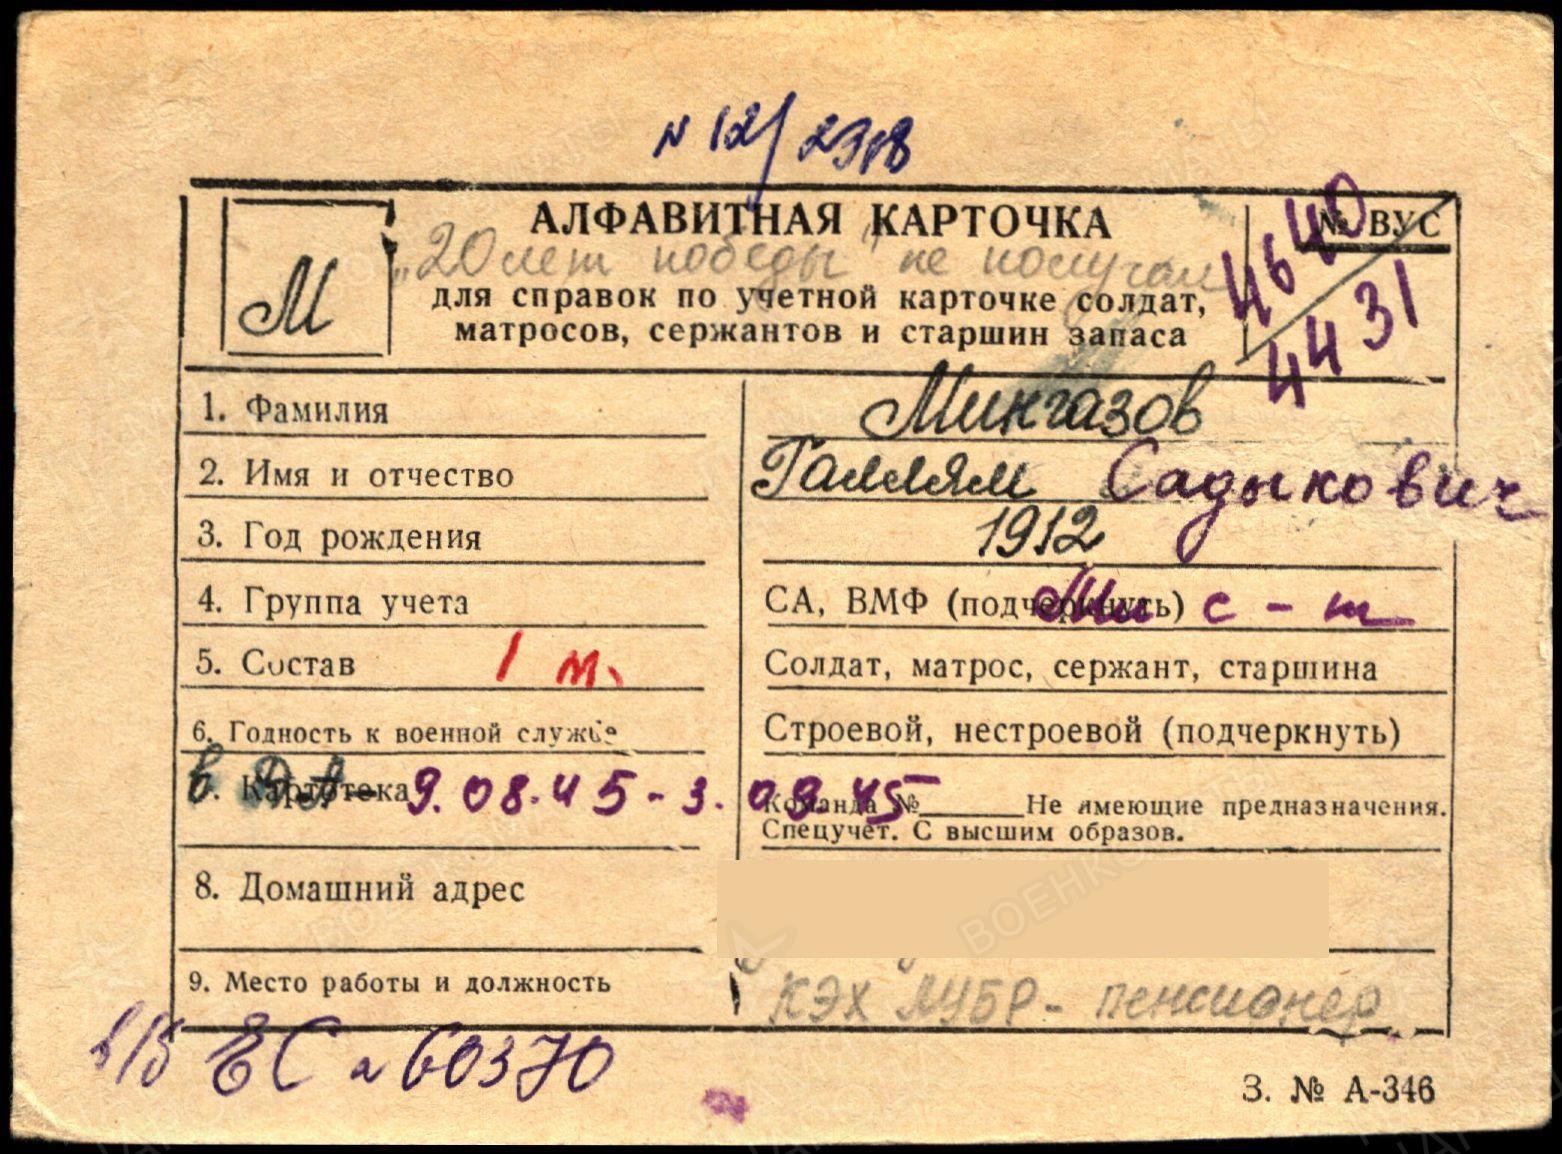 N 12/2318
АЛФАВИТНАЯ КАРТОЧКА
№ ВУС
4640
4431
М
„20 лет победы" не получал
для справок по учетной карточке солдат,
матросов, сержантов и старшин запаса
1. Фамилия Мингазов
2. Имя и отчество Галлям Садыкович
3. Год рождения 1912
4. Группа учета СА, ВМФ (подчеркнуть) Мл с-т
5. Состав 1 м. Солдат, матрос, сержант, старшина
6. Годность к военной службе Строевой, нестроевой (подчеркнуть)
в ДА - 9.08.45-3.09.45
7. Картотека Команда №______Не имеющие предназначения.
Спецучет. С высшим образов.
8. Домашний адрес
9. Место работы и должность КЭХ ЛУБР - пенсионер
в/б ЕС № 60370
З. № А-346
ВОЕНКОМАТЫ